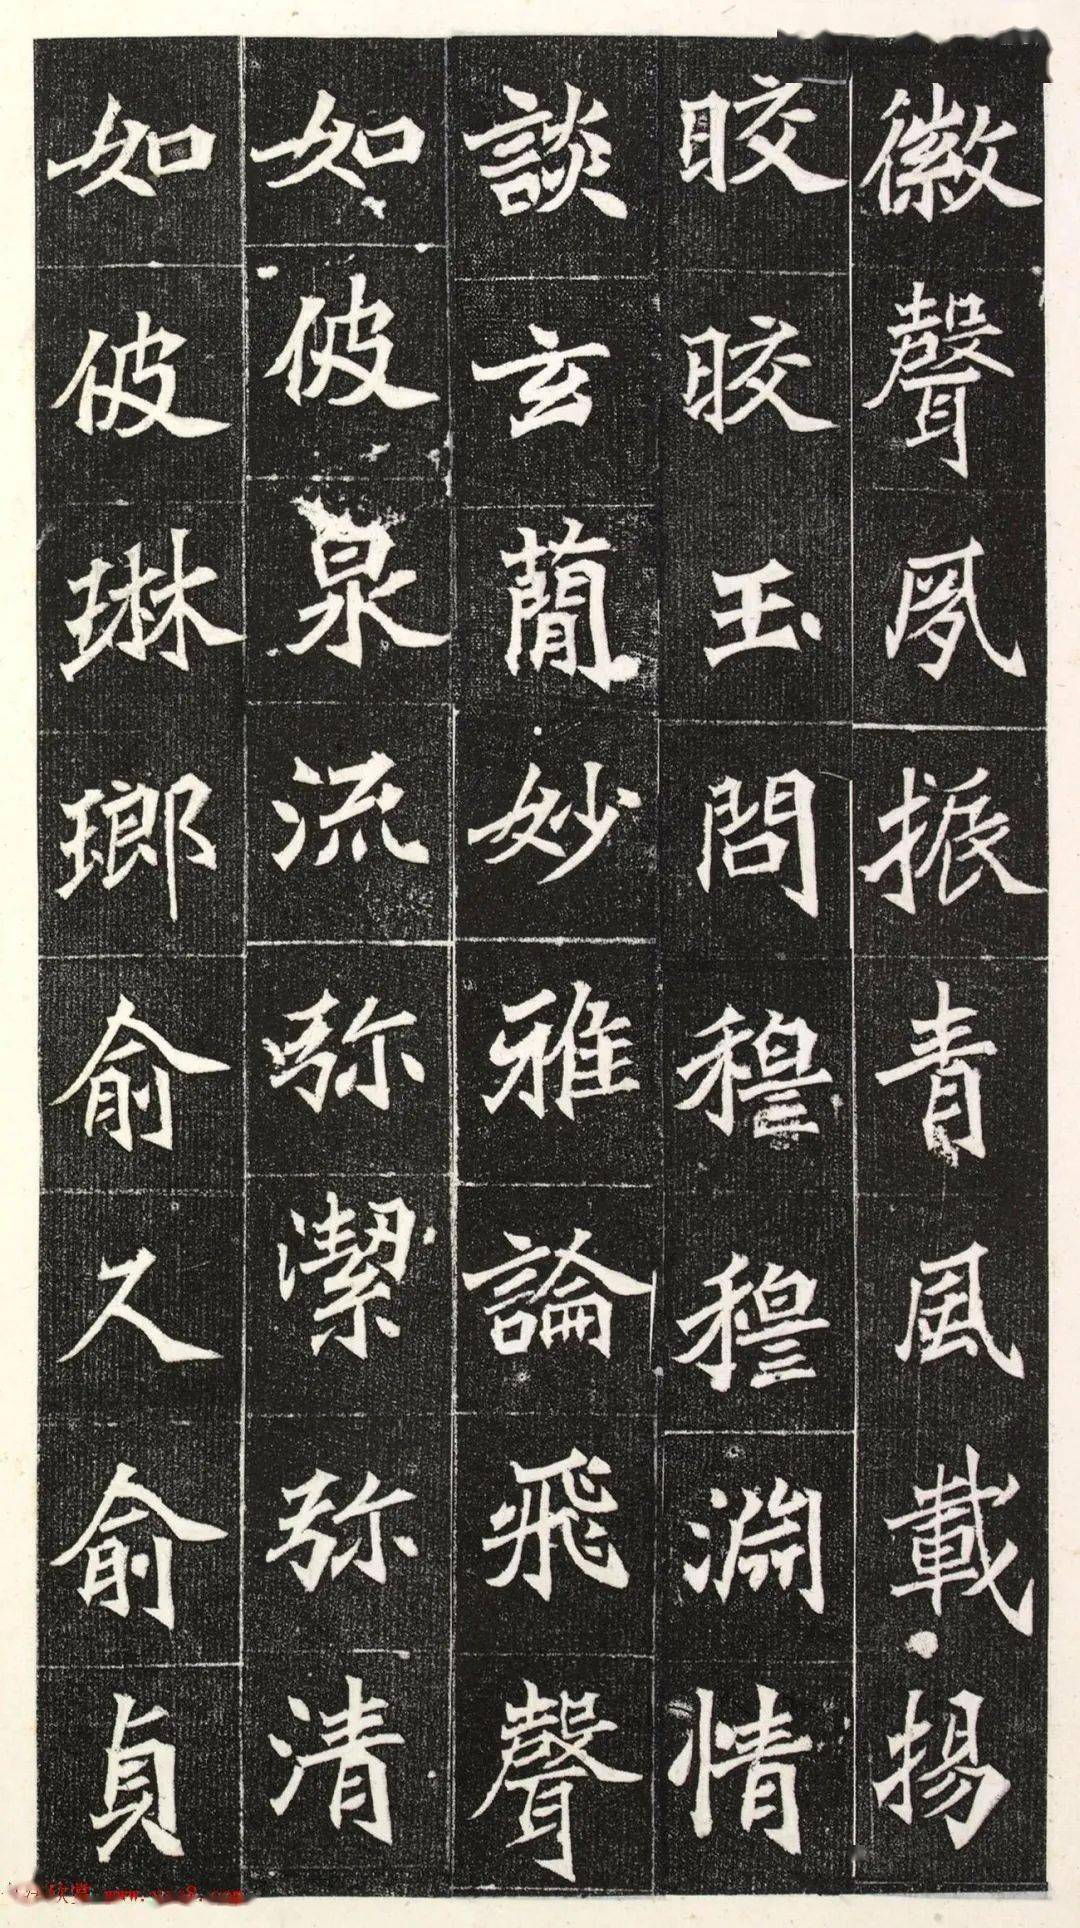 徽聲夙振青風載揚
晈晈玉問穆穆淵情
談玄蕑妙雅論飛聲
如彼泉流弥潔弥清
如彼琳瑯俞久俞貞